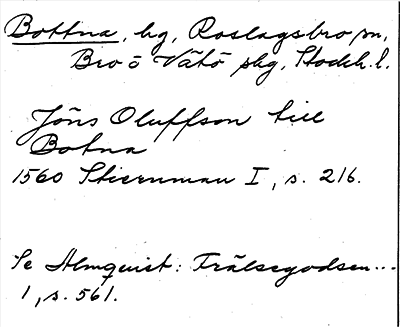 Bottna, hg, Roslagsbro sn,
Bro o Vätö skg, Stockh. l.
Jöns Oluffson till
Botna
1560 Stiernman I, s. 216.
Se Almquist: Frälsegodsen...
1, s. 561.